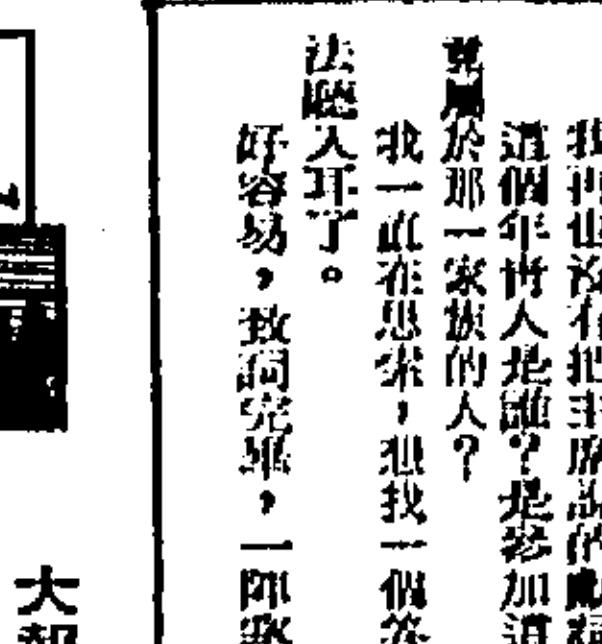 我再也沒有把主席說的
這個年青人是誰？是參加這
竟屬於那一家族的人？
我一直在思索，想找一個答
法聽入耳了。
好容易，致詞完畢，一陣歌
大報